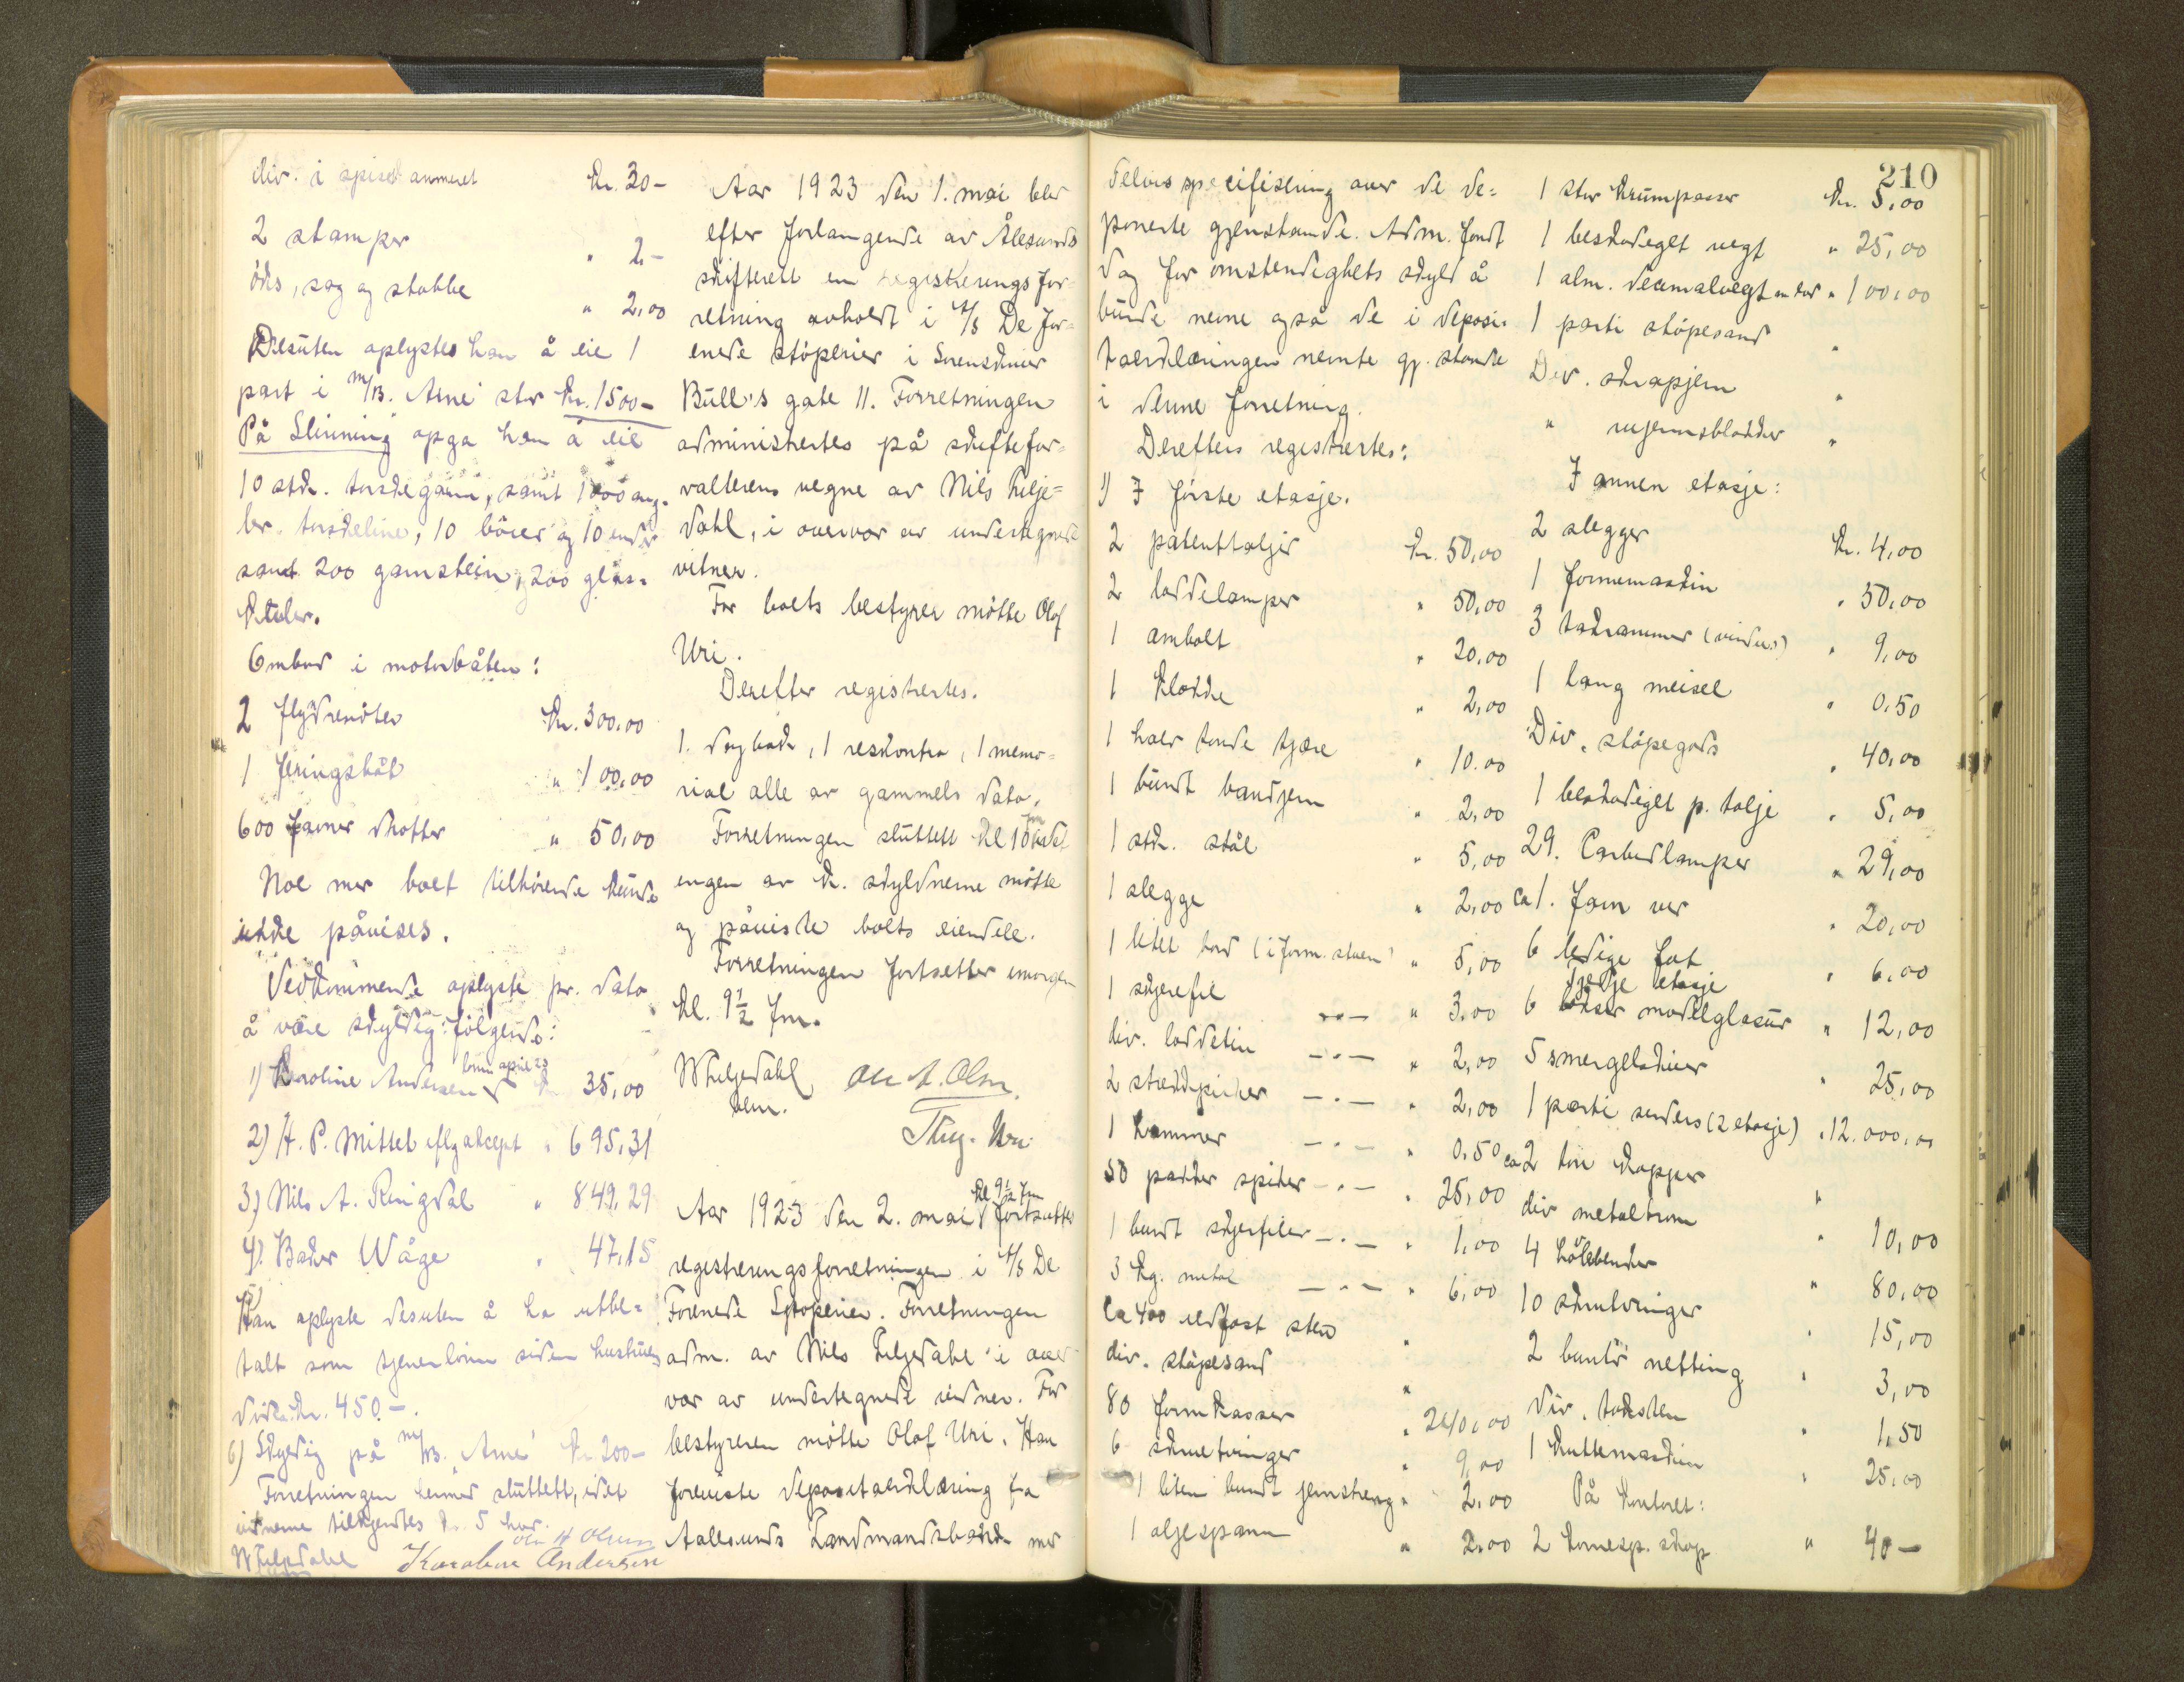 div. i spisekammeret kr. 30-
2 stamper " 2,-
öks, sag og stabbe " 2,00
Desuten oplystes han å eie 1
part i m/B. "Arne" stor kr. 1500-
På Slinning opga han å eie
10 stk. torskegarn, samt 1000 ang-
ler torskeline, 10 böier og 10 ender
samt 200 garnstein, 200 glas-
kuler.
Ombord i motorbåten:
2 flydrenöter kr. 300,00
1 feringsbåt " 100,00
600 favner drotter " 50,00
Noe mer boet tilhörende kunde
ikke påvises.
Vedkommende oplyste pr. dato
å være skyldig følgende:
1) Karoline Andersen lönn april 23 kr. 35,00
2) H. P. Mittet iflg aksept " 695,31
3) Nils A. Ringdal " 849,29
4) Baker Wåge " 47,15
5) Han oplyste desuten å ha utbe-
talt som tjenerlönn siden hustrues
död kr. 450-.
6) Skyldig på m/B. "Arne" kr. 200-
Forretningen dermed sluttett, idet
vidnerne tilkjendtes kr. 5 hver.
N Tuljedahl Ole A Olsen
Karoline Andersen
Aar 1923 den 1. mai blev
efter forlangende av Ålesunds
skifterett en registrerings for-
retning avholdt i A/S De for-
enede stöperier i Sorenskriver
Bull's gate 11. Forretningen
administrertes på skiftefor-
valterens vegne av Nils Tulje-
dahl, i overvær av undertegnede
vitner.
For boets bestyrer mötte Olof
Uri.
Derefter registrertes.
1. dagbok, 1 reskontra, 1 memo-
rial alle av gammels dato.
Forretningen sluttett kl 10 fm idet
ingen av de skyldnerne mötte
og påviste boets eiendele.
Forretningen fortsetter imorgen
kl. 9½ fm.
N Tuljedahl Ole A. Olsen
bem. Thry. Uri
Aar 1923 den 2. mai kl 9½ fm fortsattes
registreringsforretningen i A/S De
Forenede Støperier. Forretningen
adm. av Nils Tuljedahl i over-
vær av undertegnede vidner. For
bestyreren mötte Olof Uri. Han
foreviste depositaerklæring fra
Aalesunds Landmandsbank med
210
delvis specifisering over de de-
ponerte gjenstande. Adm. fandt
dog for omstendighets skyld å
burde nevne også de i deposi-
taerklæringen nevnte gj. stande
i denne forretning.
Derefter registrertes:
1) I förste etasje.
2 patenttaljer kr. 50,00
2 loddelamper " 50,00
1 ambolt " 20,00
1 klokke " 2,00
1 halv tönde tjære " 10.00
1 bundt bandjern " 2,00
1 stk. stål " 5,00
1 slegge " 2,00
1 litet bord (i form. stuen) " 5,00
1 skjerefil -"- " 3,00
div. loddetin -"- " 2,00
2 strekkpinner -"- " 2,00
1 hammer -"- " 0,50
50 pakker spiker -"- " 25,00
1 bundt skjerfiler -"- " 1,00
3 kg. metal -"- " 6,00
Ca 400 ildfast sten "
div. stöpesand "
80 formkasser " 240,00
6 skruetvinger " 9,00
1 liten bundt jernstreng " 2,00
1 oljespann " 2,00
1 stor krumpasser kr. 5,00
1 beskadiget vegt " 25,00
1 alm. decimalvegt m lod " 100,00
1 parti stöpesand "
Div. skrapjern "
" rujernsblokker "
I annen etasje:
2 slegger kr. 4,00
1 formemaskin " 50,00
3 takrammer (vindu) " 9,00
1 lang meisel " 0,50
Div. stöpegods " 40,00
1 beskadiget p. talje " 5,00
29. Carbidlamper " 29,00
Ca 1. favn ved " 20,00
6 ledige fat " 6,00
Tredje etasje
6 bokser modellglasur " 12,00
5 smergelskiver " 25,00
1 parti modeller (2 etasje) " 12.000,00
ca 2 tön kapper "
div metaltrom " 10,00
4 hölebenker " 80,00
10 skrutvinger " 15,00
2 bunter netting " 3,00
Div. taksten " 1,50
1 kuttemaskin " 25,00
På kontoret:
2 tomesp. skap " 40-